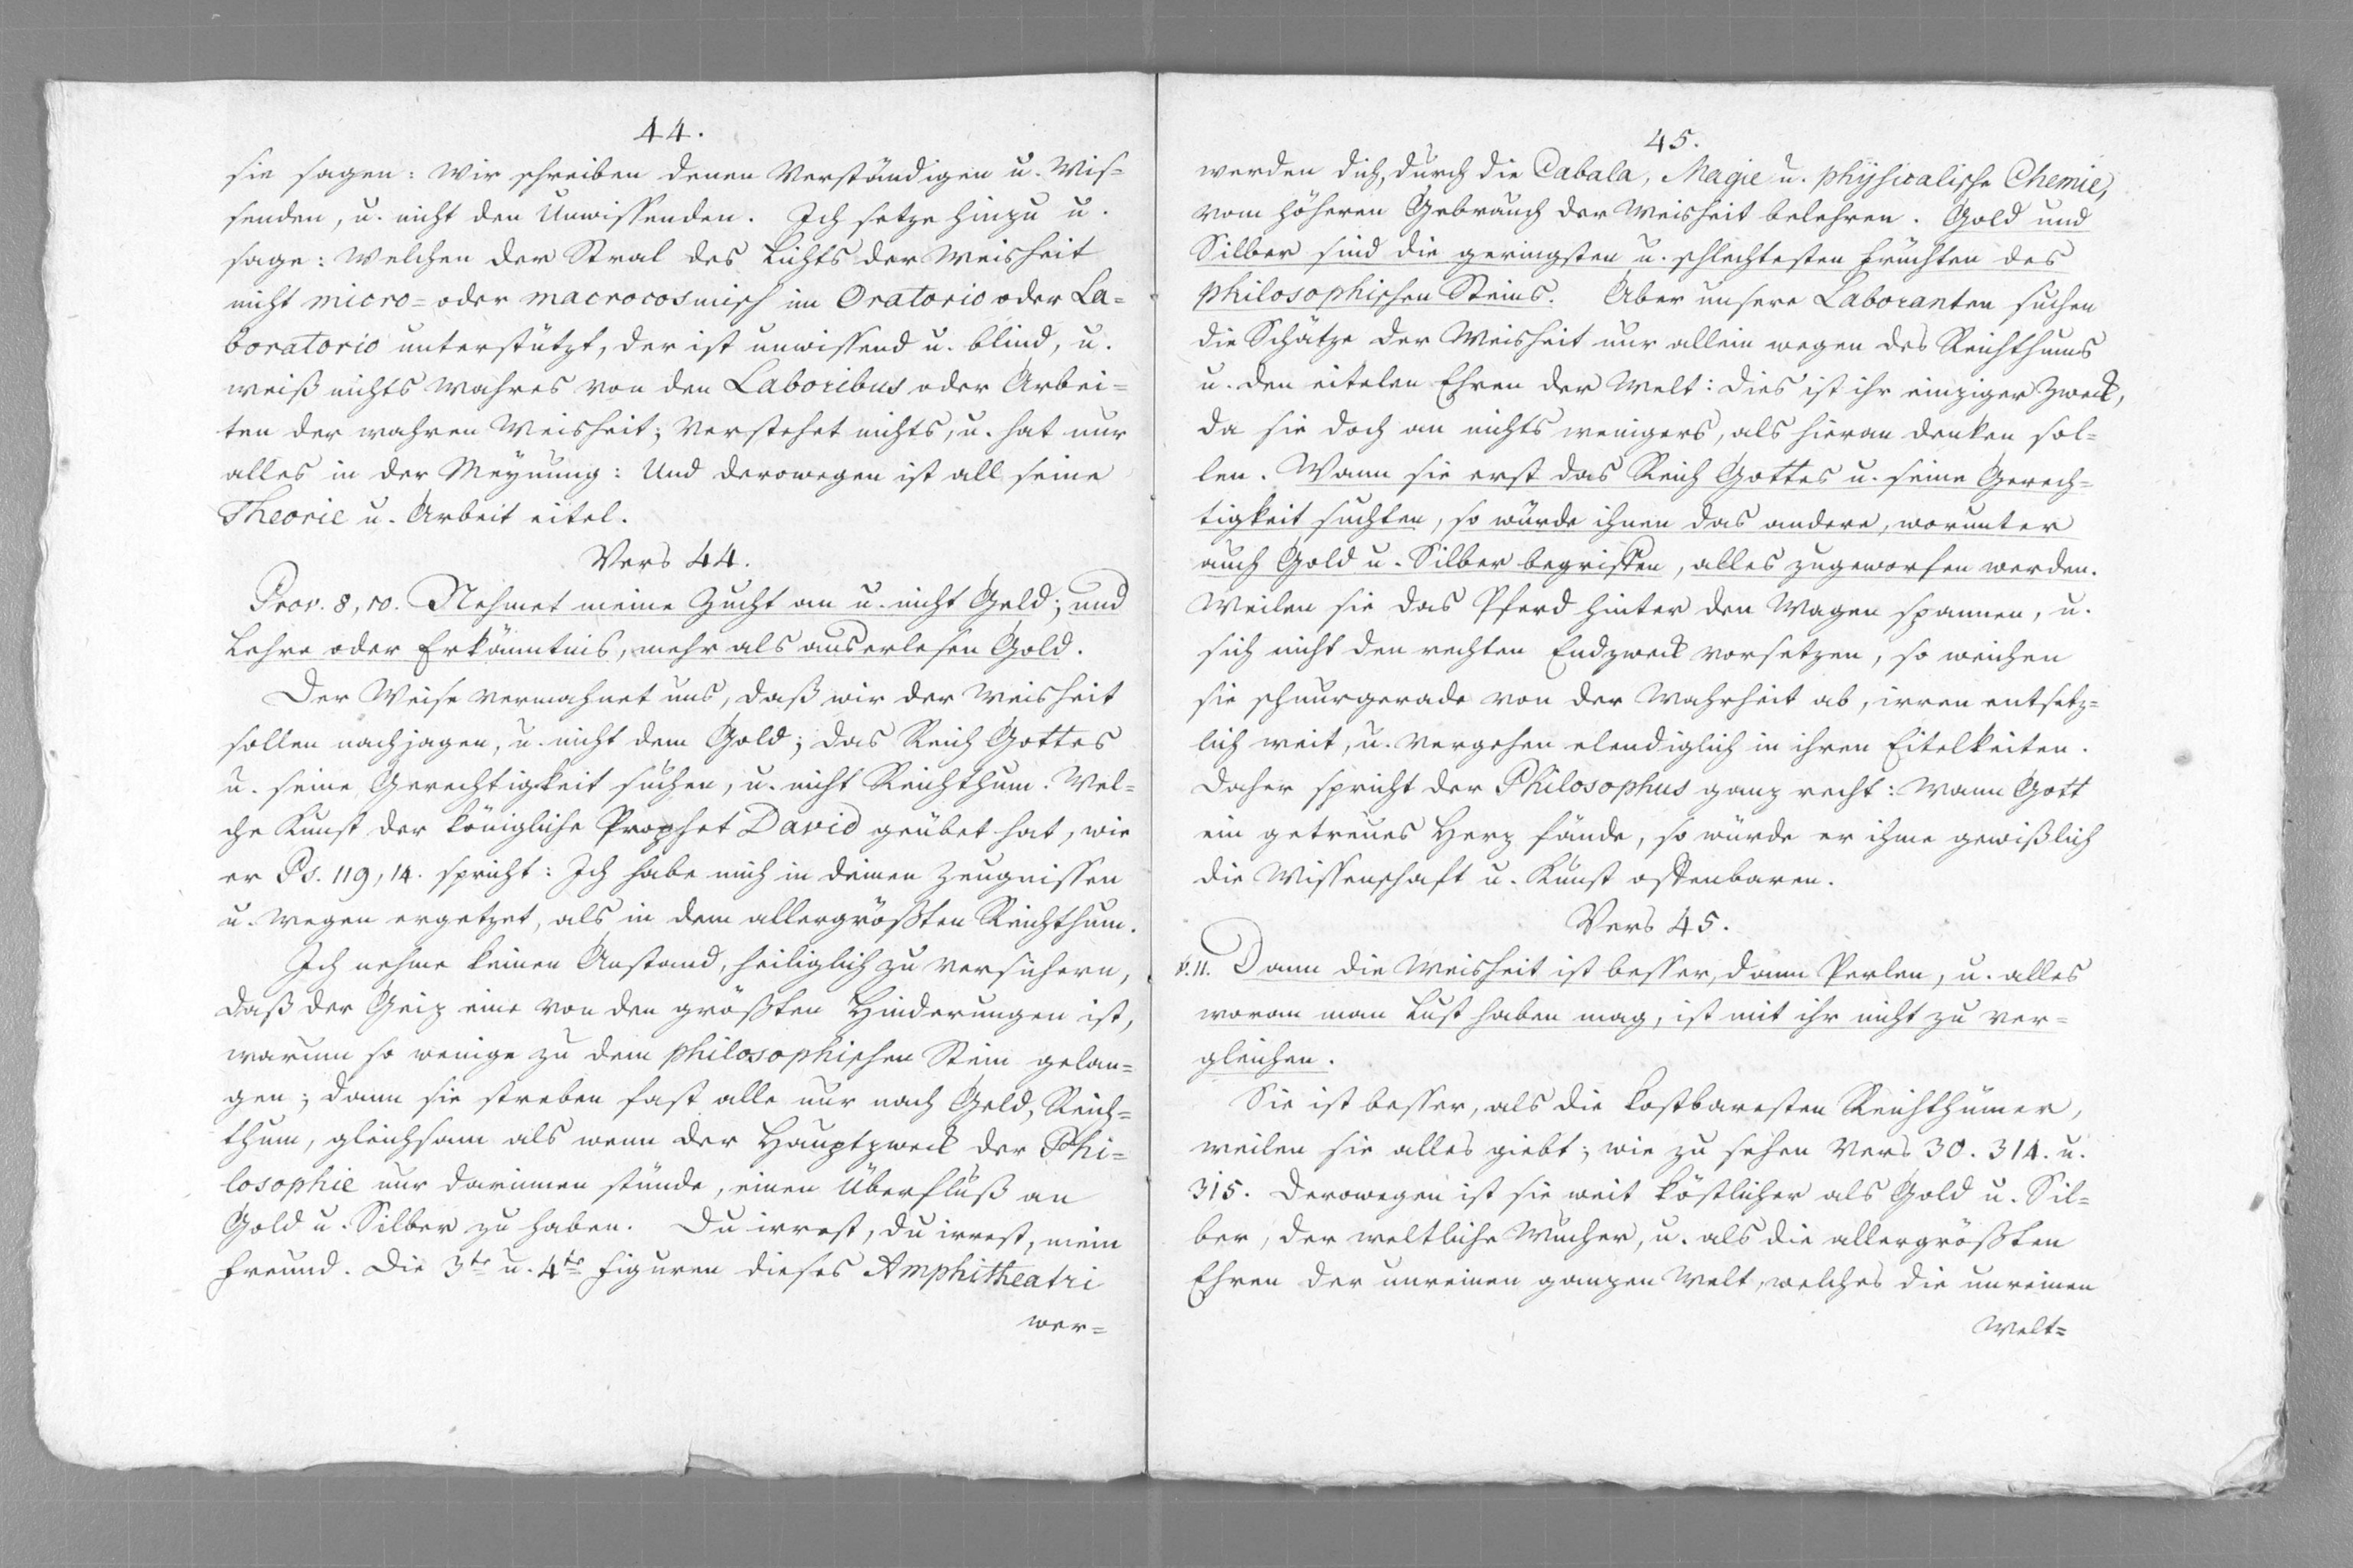 44.
sie sagen: Wir schreiben denen Verständigen u. Wis=
senden, u. nicht den Unwissenden. Ich setze hinzu u.
sage: Welchen der Stral des Lichts der Weisheit
nicht micro= oder macrocosmisch im Oratorio oder La=
boratorio unterstützt, der ist unwissend u. blind, u.
weiß nichts wahres von den Laboribus oder Arbei=
ten der wahren Weisheit; verstehet nichts, u. hat nur
alles in der Meynung: Und derowegen ist all seine
Theorie u. Arbeit eitel.
Vers 44.
Prov. 8, 10. Nehmet meine Zucht an u. nicht Geld; und
Lehre oder Erkänntnis, mehr als auserlesen Gold.
Der Weise vermahnet uns, daß wir der Weisheit
sollen nachjagen, u. nicht dem Gold; das Reich Gottes
u. seine Gerechtigkeit suchen, u. nicht Reichthum. Wel=
che Kunst der königliche Prophet David geübet hat, wie
er Ps. 119, 14. spricht: Ich habe mich in deinen Zeugnissen
u. Wegen ergetzet, als in dem allergrößten Reichthum.
Ich nehme keinen Anstand, heiliglich zu versichern,
daß der Geiz eine von den größten Hinderungen ist,
warum so wenige zu dem philosophischen Stein gelan=
gen; dann sie streben fast alle nur nach Geld, Reich=
thum, gleichsam als wenn der Hauptzweck der Phi=
losophie nur darinnen stünde, einen Überfluß an
Gold u. Silber zu haben. Du irrest, du irrest, mein
Freund. Die 3te u. 4te Figuren dieses Amphitheatri
wer=
45.
werden dich, durch die Cabala, Magie u. physicalische Chemie,
vom höheren Gebrauch der Weisheit belehren. Gold und
Silber sind die geringsten u. schlechtesten Früchten des
philosophischen Steins. Aber unsere Laboranten suchen
die Schätze der Weisheit nur allein wegen des Reichthums
u. den eitelen Ehren der Welt: dies ist ihr einziger Zweck,
da sie doch an nichts wenigers, als hieran denken sol=
len. Wann sie erst das Reich Gottes u. seine Gerech=
tigkeit suchten, so würde ihnen das andere, worunter
auch Gold u. Silber begriffen, alles zugeworfen werden.
Weilen sie das Pferd hinter den Wagen spannen, u.
sich nicht den rechten Endzweck vorsetzen, so weichen
sie schnurgerade von der Wahrheit ab, irren entsetz=
lich weit, u. vergehen elendiglich in ihren Eitelkeiten.
Daher spricht der Philosophus ganz recht: Wann Gott
ein getreues Herz fände, so würde er ihme gewißlich
die Wissenschaft u. Kunst offenbaren.
Vers 45.
v. 11. Dann die Weisheit ist besser, dann Perlen, u. alles
woran man Lust haben mag, ist mit ihr nicht zu ver=
gleichen.
Sie ist besser, als die kostbaresten Reichthümer,
weilen sie alles giebt; wie zu sehen Vers 30. 314. u.
315. Derowegen ist sie weit köstlicher als Gold u. Sil=
ber, der weltliche Wucher, u. als die allergrößten
Ehren der unreinen ganzen Welt, welches die unreinen
Welt=